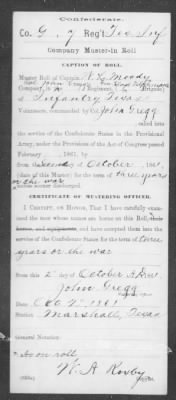 Confederate.
Co. G, 7 Reg't Tex Inf
Company Muster-In Roll
CAPTION OF ROLL.
Muster Roll of Captain K. M. Moody
Company in the 7 Regiment of
Infantry Texas
Volunteers, commanded by Col John Gregg
called into
the service of the Confederate States in the Provisional
Army, under the Provisions of the Act of Congress passed
February, 1861, by
from the Second of October, 1861,
(date of this Muster) for the term of three years
or the war
unless sooner discharged.
CERTIFICATE OF MUSTERING OFFICER.
I CERTIFY, ON HONOR, That I have carefully examined
the men whose names are borne on this Roll, their
horses, and equipments, and have accepted them into the
service of the Confederate States for the term of three
years or the war
from this 2d day of October, 1861.
John Gregg
Mustering Officer.
Date: Oct 2d 1861
Station: Marshall, Texas
General Notation:
on roll,
W. A. Rosby
Copyist.